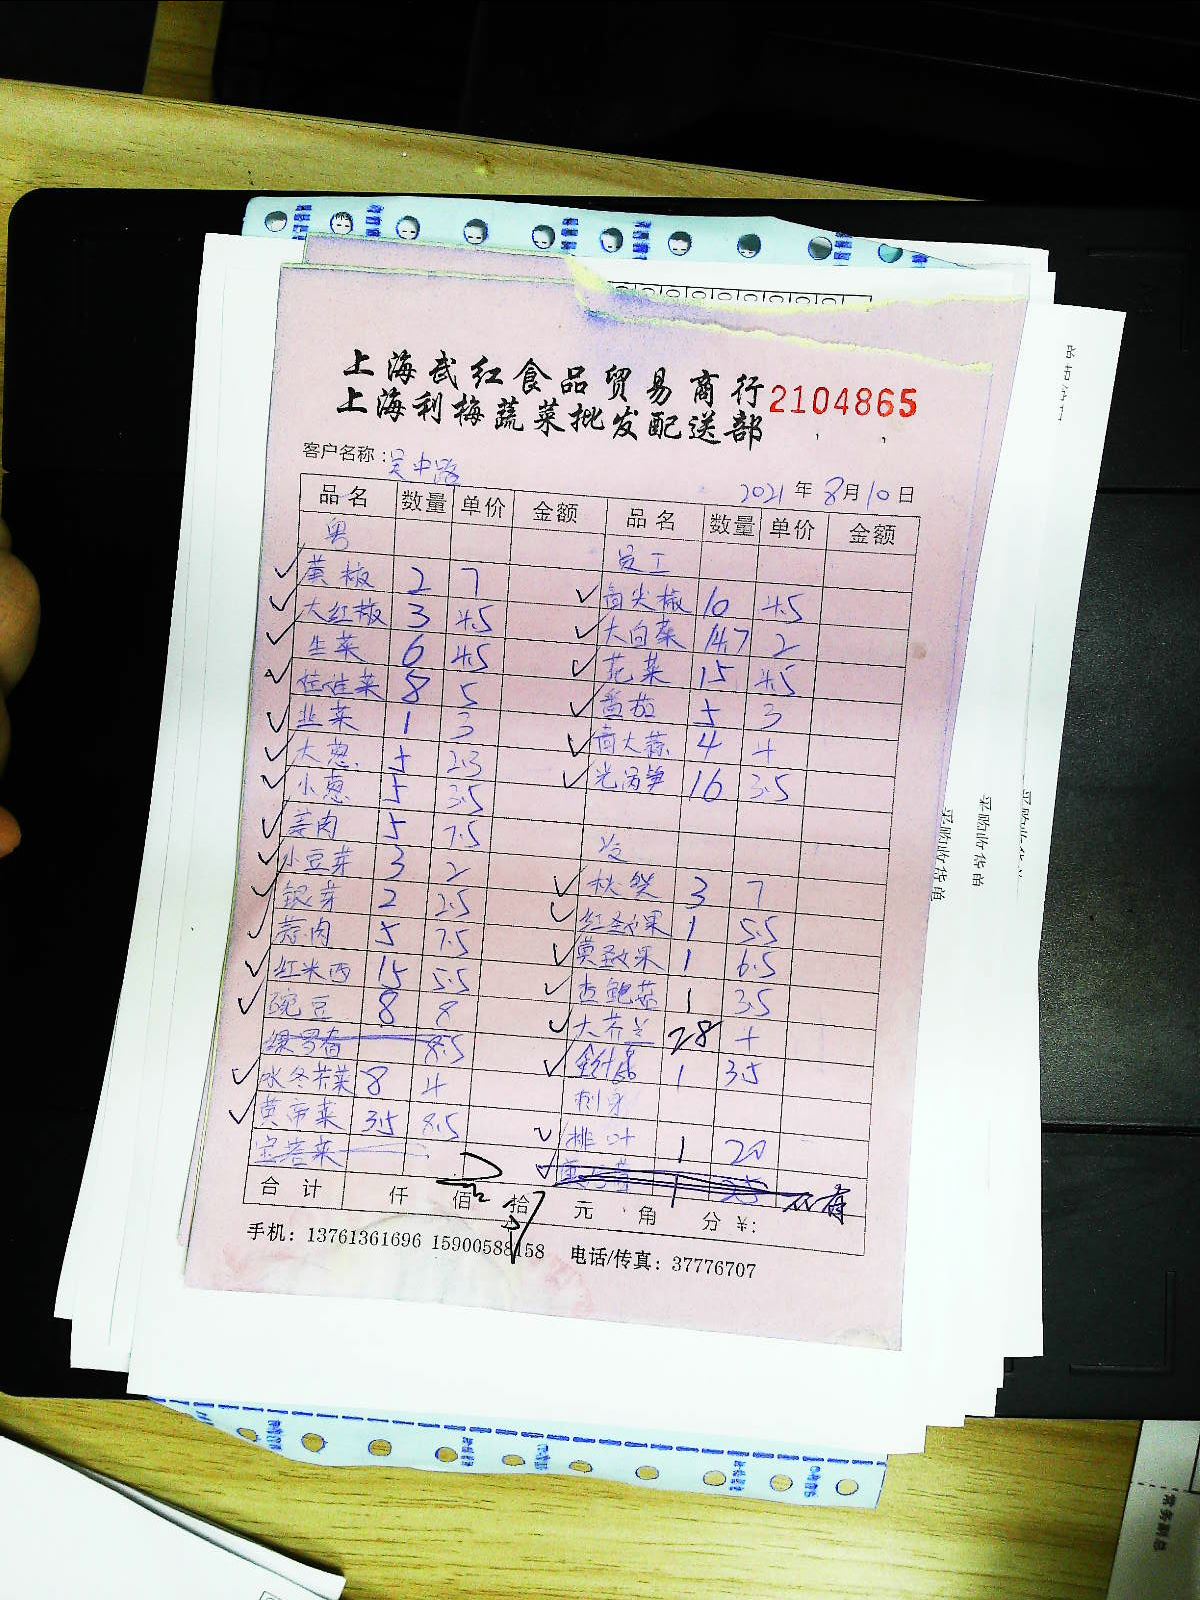 上海武红食品贸易商行
上海利梅蔬菜批发配送部
2104865
客户名称：吴中路
2021年8月10日
品名 数量 单价 金额 品名 数量 单价 金额
粤 员工
黄椒 2 7 青尖椒 10 4.5
大红椒 3 4.5 大白菜 14.7 2
生菜 6 4.5 花菜 15 4.5
娃娃菜 8 5 番茄 5 3
韭菜 1 3 青大蒜 4 4
大葱 5 2.3 光莴笋 16 3.5
小葱 5 3.5
姜肉 5 7.5
小豆芽 3 2 秋葵 3 7
银芽 2 2.5 红圣女果 1 5.5
蒜肉 5 7.5 黄圣女果 1 6.5
红米西 15 5.5 杏鲍菇 1 3.5
豌豆 8 8 大芥兰 28 4
8.5 金针菇 1 3.5
水冬芥菜 8 4 刺身
黄帝菜 3.5 8.5 排叶 1 20
宝塔菜 1 3.5
合计 仟 佰 拾 元 角 分 ¥:
手机：13761361696 15900588158 电话/传真：37776707
采购收货单
采购收货单
常务副总